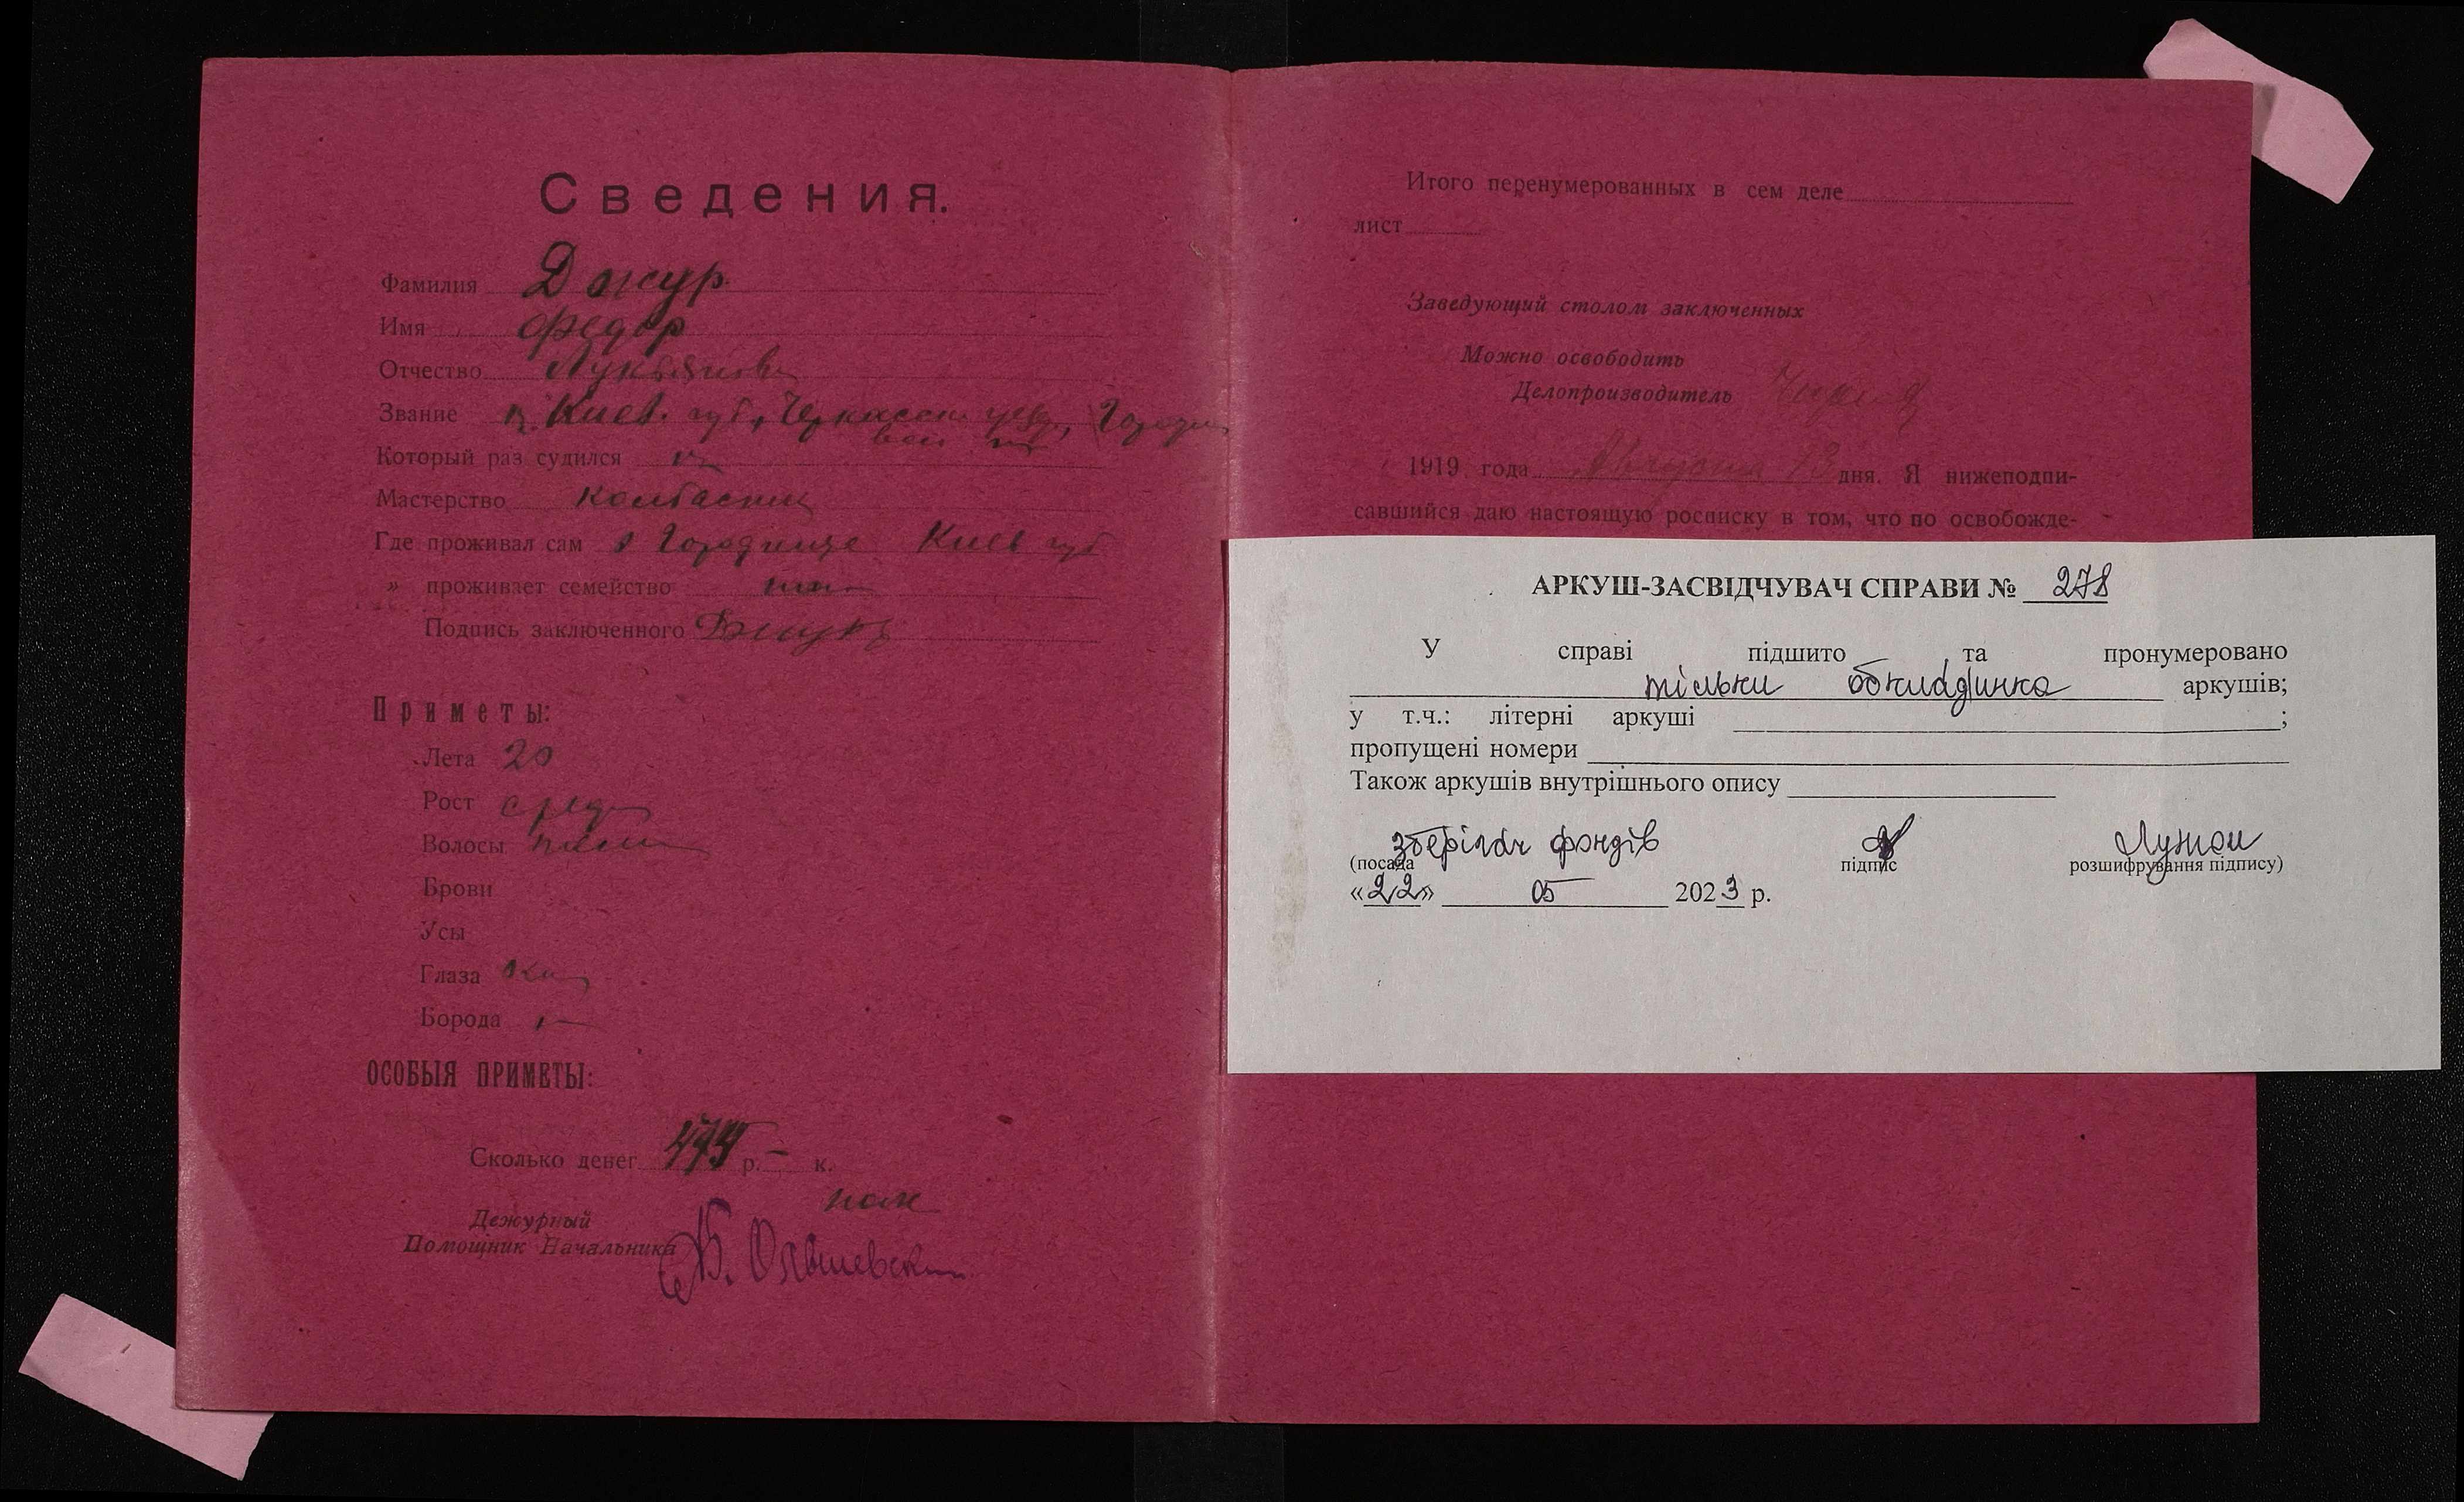 Сведения.
Фамилия Джур
Имя Федор
Отчество Лукьянов
Звание Киев. губ., Черкасск уезд,
Который раз судился
Мастерство колбасник
Где проживал сам Городище Киев губ
» проживает семейство
Подпись заключенного
Приметы:
Лета 20
Рост сред
Волосы
Брови
Усы
Глаза
Борода —
ОСОБЫЯ ПРИМЕТЫ:
Сколько денег р. — к.
Дежурный
Помощник Начальника
Итого перенумерованных в сем деле
лист
Заведующий столом заключенных
Можно освободить
Делопроизводитель
1919 года Августа 13 дня. Я нижеподпи-
савшийся даю настоящую росписку в том, что по освобожде-
АРКУШ-ЗАСВІДЧУВАЧ СПРАВИ № 278
У справі підшито та пронумеровано
тільки обкладинка аркушів;
у т.ч.: літерні аркуші ;
пропущені номери
Також аркушів внутрішнього опису
зберігач фондів
(посада підпис розшифрування підпису)
«22» 05 2023 р.